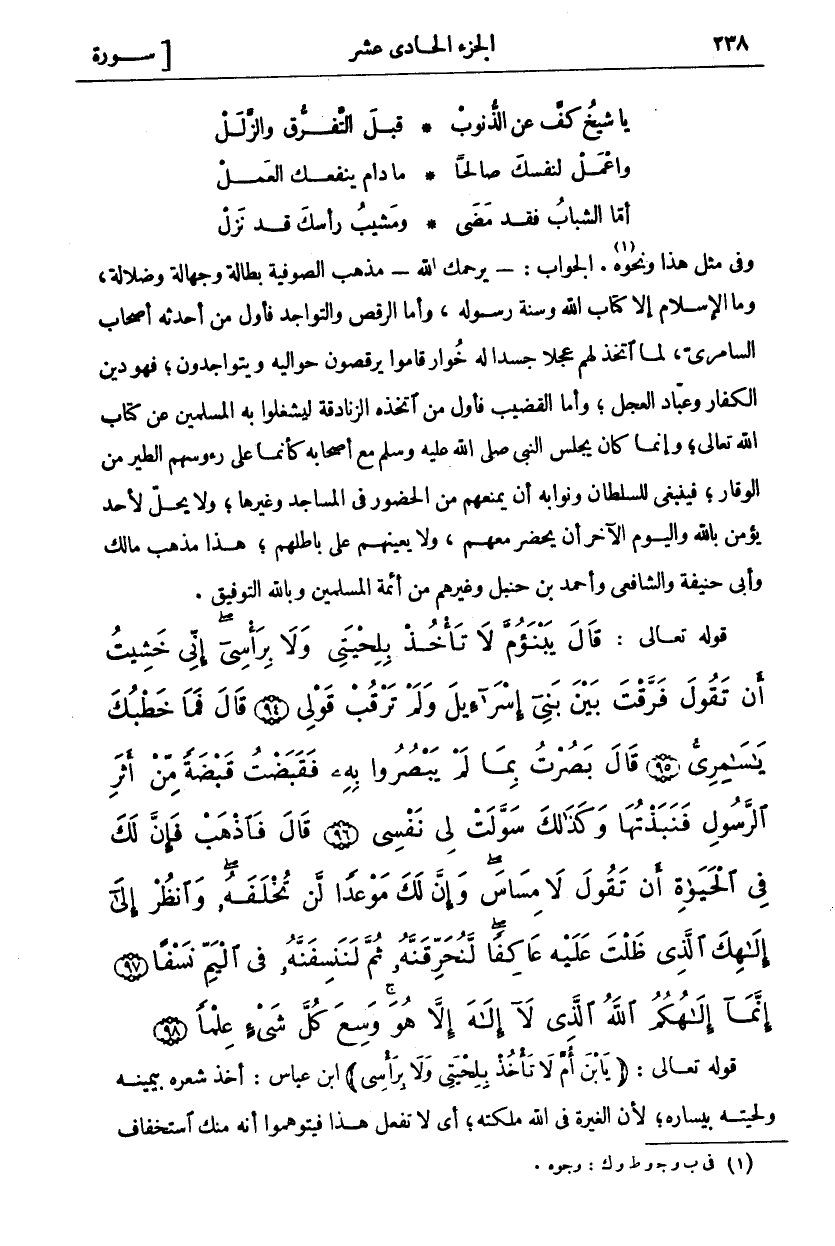 ٢٣٨ الجزء الحادى عشر [ ســورة
يا شيخُ كفَّ عن الذُّنوبْ * قبلَ التَّفـرُّق والزَّلَلْ
واعْمَلْ لنفسكَ صالحًا * ما دام ينفعـك العَمـلْ
أمّا الشبابُ فقـد مَضَى * ومَشيبُ رأسكَ قـد نَزَلْ
وفى مثل هذا ونحوه(١). الجواب : — يرحمك الله — مذهب الصوفية بطالة وجهالة وضلالة،
وما الإسلام إلا كتاب الله وسنة رسوله ، وأما الرقص والتواجد فأول من أحدثه أصحاب
السامرىّ، لمـا ٱتخذ لهم عجلا جسدا له خُوار قاموا يرقصون حواليه ويتواجدون؛ فهو دين
الكفار وعبّاد العجل ؛ وأما القضيب فأول من ٱتخذه الزنادقة ليشغلوا به المسلمين عن كتاب
الله تعالى؛ وإنمـا كان يجلس النبي صلى الله عليه وسلم مع أصحابه كأنمـا على رءوسهم الطير من
الوقار ؛ فينبغى للسلطان ونوابه أن يمنعهم من الحضور فى المساجد وغيرها ؛ ولا يحـلّ لأحد
يؤمن بالله واليـوم الآخر أن يحضر معهـم ، ولا يعينهـم على باطلهم ؛ هـذا مذهب مالك
وأبى حنيفة والشافعى وأحمد بن حنبل وغيرهم من أئمة المسلمين وبالله التوفيق .
قوله تعـالى : قَالَ يَبْنَؤُمَّ لَا تَأْخُـذْ بِلِحْيَتِى وَلَا بِرَأْسِىٓ ۖ إِنِّى خَشِيتُ
أَن تَقُولَ فَرَّقْتَ بَيْنَ بَنِىٓ إِسْرَٰٓءِيلَ وَلَمْ تَرْقُبْ قَوْلِى ﴿٩٤﴾ قَالَ فَمَا خَطْبُكَ
يَـٰسَـٰمِرِىُّ ﴿٩٥﴾ قَالَ بَصُرْتُ بِمَـا لَمْ يَبْصُرُوا بِهِۦ فَقَبَضْتُ قَبْضَةً مِّنْ أَثَرِ
ٱلرَّسُولِ فَنَبَذْتُهَا وَكَذَٰلِكَ سَوَّلَتْ لِى نَفْسِى ﴿٩٦﴾ قَالَ فَـٱذْهَبْ فَإِنَّ لَكَ
فِى ٱلْحَيَوٰةِ أَن تَقُولَ لَا مِسَاسَ ۖ وَإِنَّ لَكَ مَوْعِدًا لَّن تُخْلَفَهُۥ ۖ وَٱنظُرْ إِلَىٰٓ
إِلَـٰهِكَ ٱلَّذِى ظَلْتَ عَلَيْهِ عَاكِفًا ۖ لَّنُحَرِّقَنَّهُۥ ثُمَّ لَنَنسِفَنَّهُۥ فِى ٱلْيَمِّ نَسْفًا ﴿٩٧﴾
إِنَّمَـآ إِلَـٰهُكُمُ ٱللَّهُ ٱلَّذِى لَآ إِلَـٰهَ إِلَّا هُوَ ۚ وَسِعَ كُلَّ شَىْءٍ عِلْمًا ﴿٩٨﴾
قوله تعـالى : ﴿ يَابْنَ أُمَّ لَا تَأْخُذْ بِلِحْيَتِى وَلَا بِرَأْسِى ﴾ ابن عباس : أخذ شعره بيمينـه
ولحيتـه بيساره؛ لأن الغيرة فى الله ملكته؛ أى لا تفعل هـذا فيتوهموا أنه منك ٱستخفاف
(١) فى ب و جـ و ط و ك : وجوه .